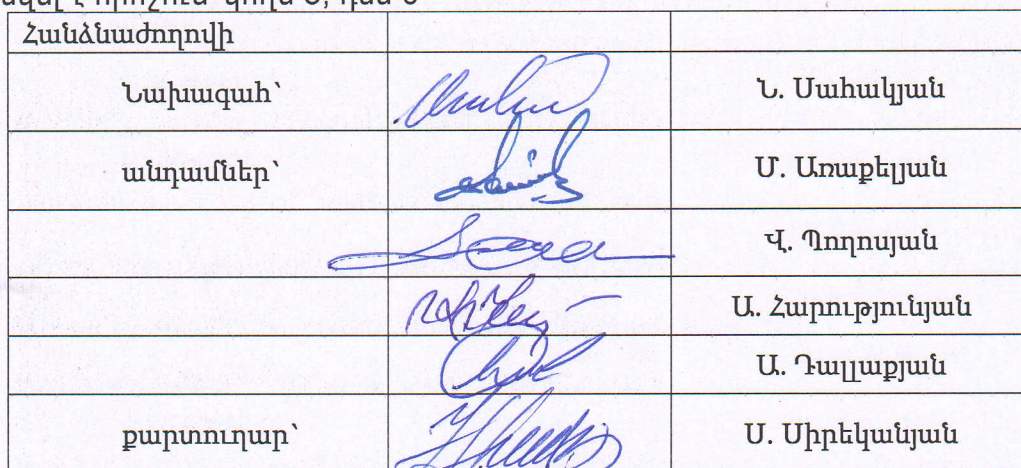 Հանձնաժողովի
Նախագահ՝ Ն. Սահակյան
անդամներ՝ Մ. Առաքելյան
Վ. Պողոսյան
Ա. Հարությունյան
Ա. Դալլաքյան
քարտուղար՝ Ս. Սիրեկանյան